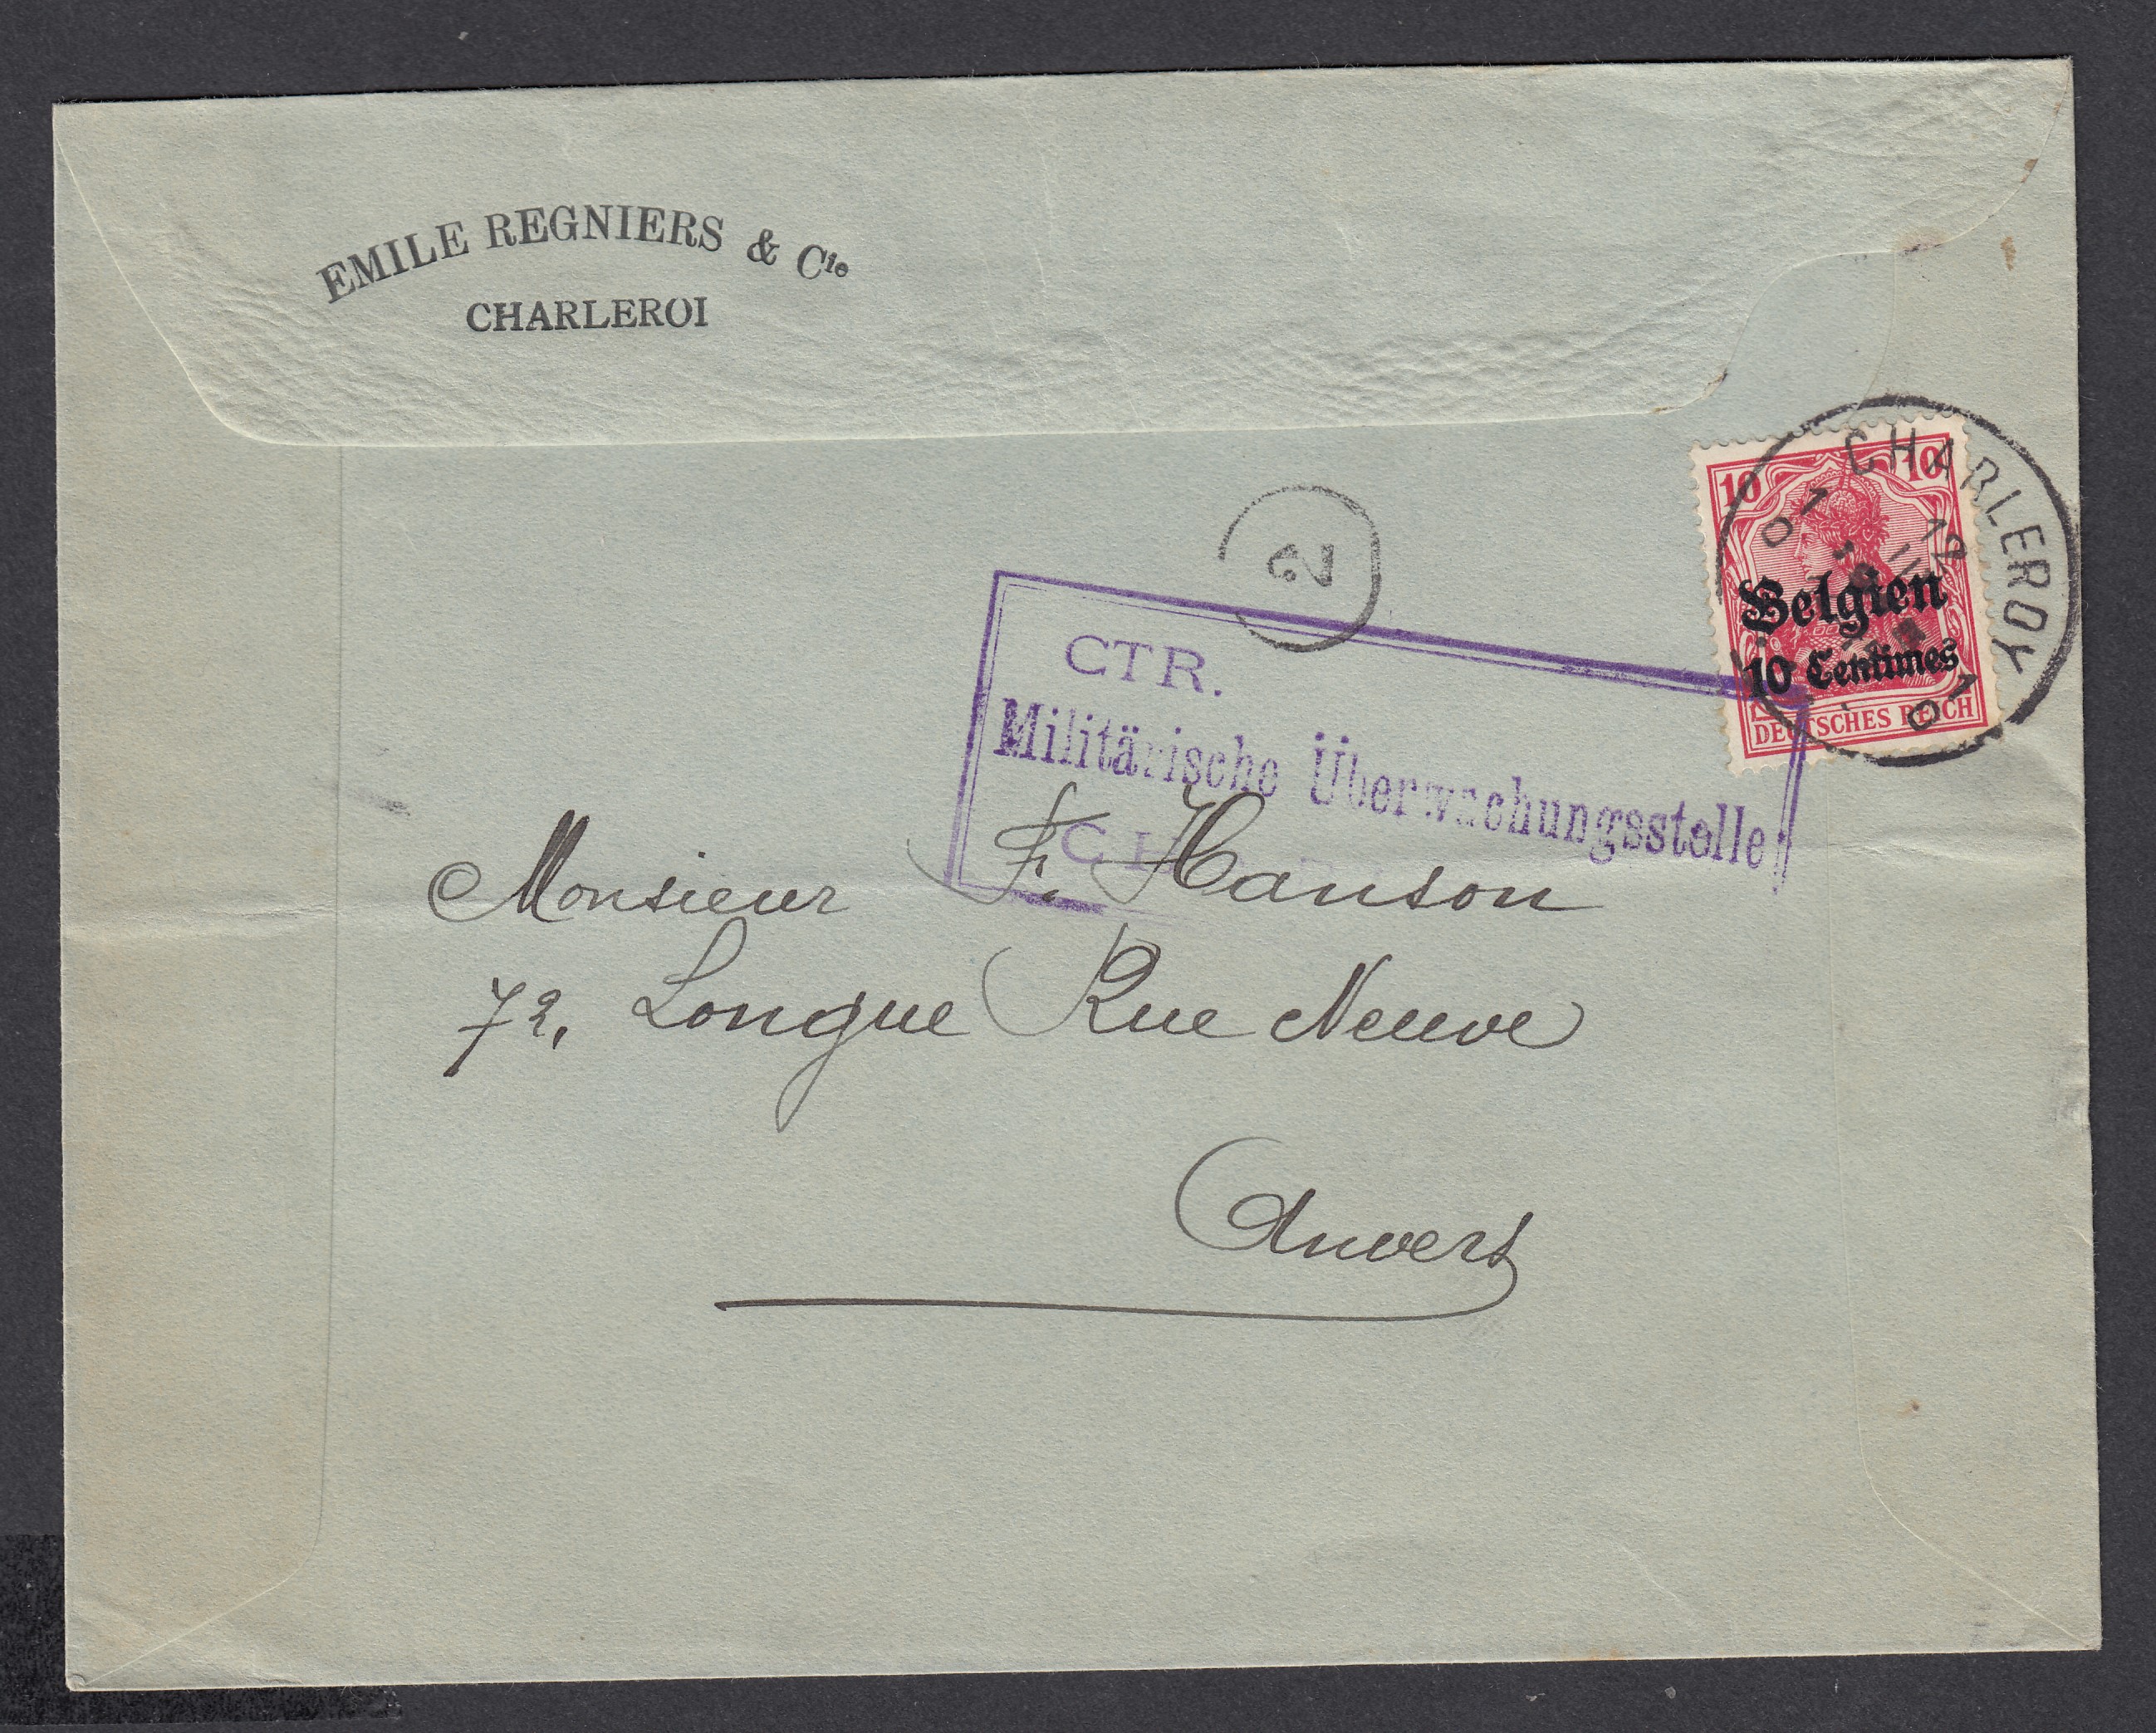 EMILE REGNIERS & Cie
CHARLEROI
2
CHARLEROY
10 10
Belgien
10 Centimes
DEUTSCHES REICH
CTR.
Militärische Überwachungsstelle
Monsieur F. Hanson
72, Longue Rue Neuve
Anvers